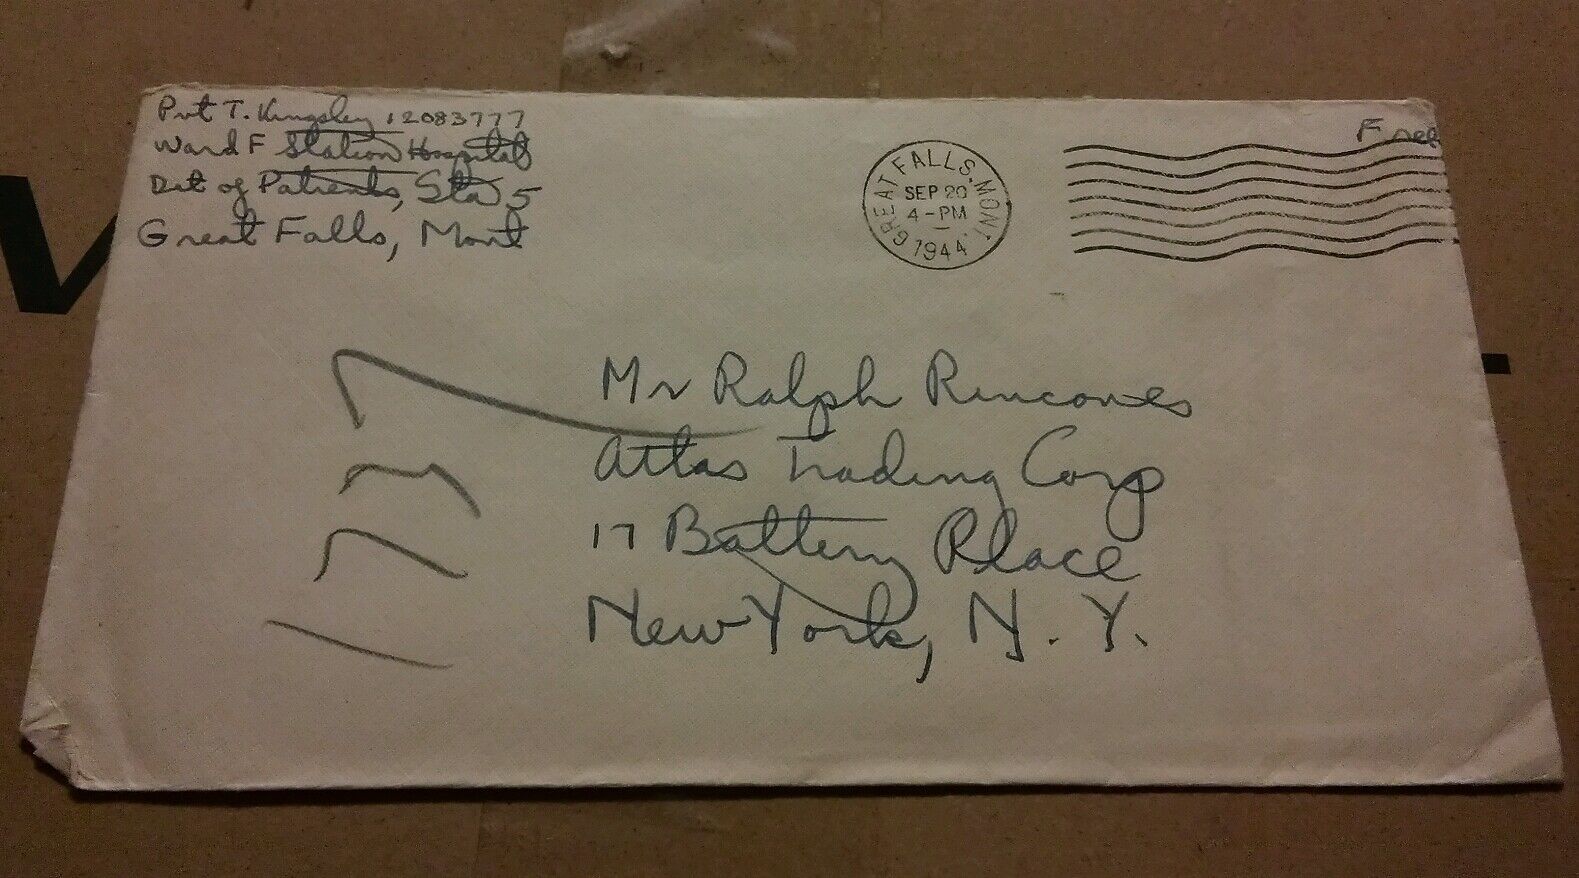 Pvt T. Kingsley 12083777
Ward F Station Hospital
Det of Patients, Sta 5
Great Falls, Mont
GREAT FALLS, MONT.
SEP 20
4-PM
1944
Free
Mr Ralph Rincones
Atlas Trading Corp
17 Battery Place
New York, N.Y.